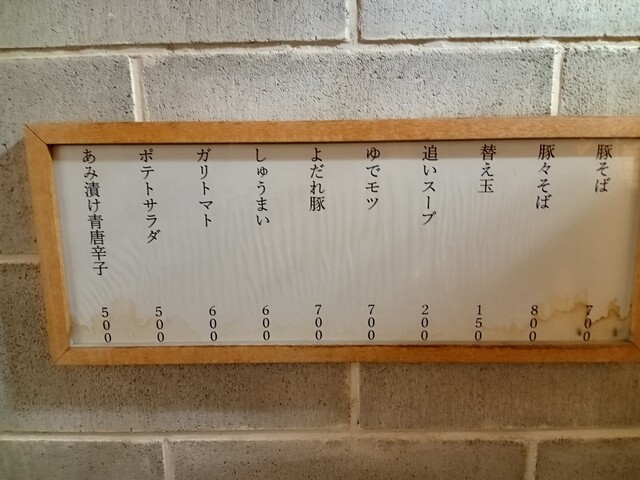 豚そば 700
豚々そば 800
替え玉 150
追いスープ 200
ゆでモツ 700
よだれ豚 700
しゅうまい 600
ガリトマト 600
ポテトサラダ 500
あみ漬け青唐辛子 500